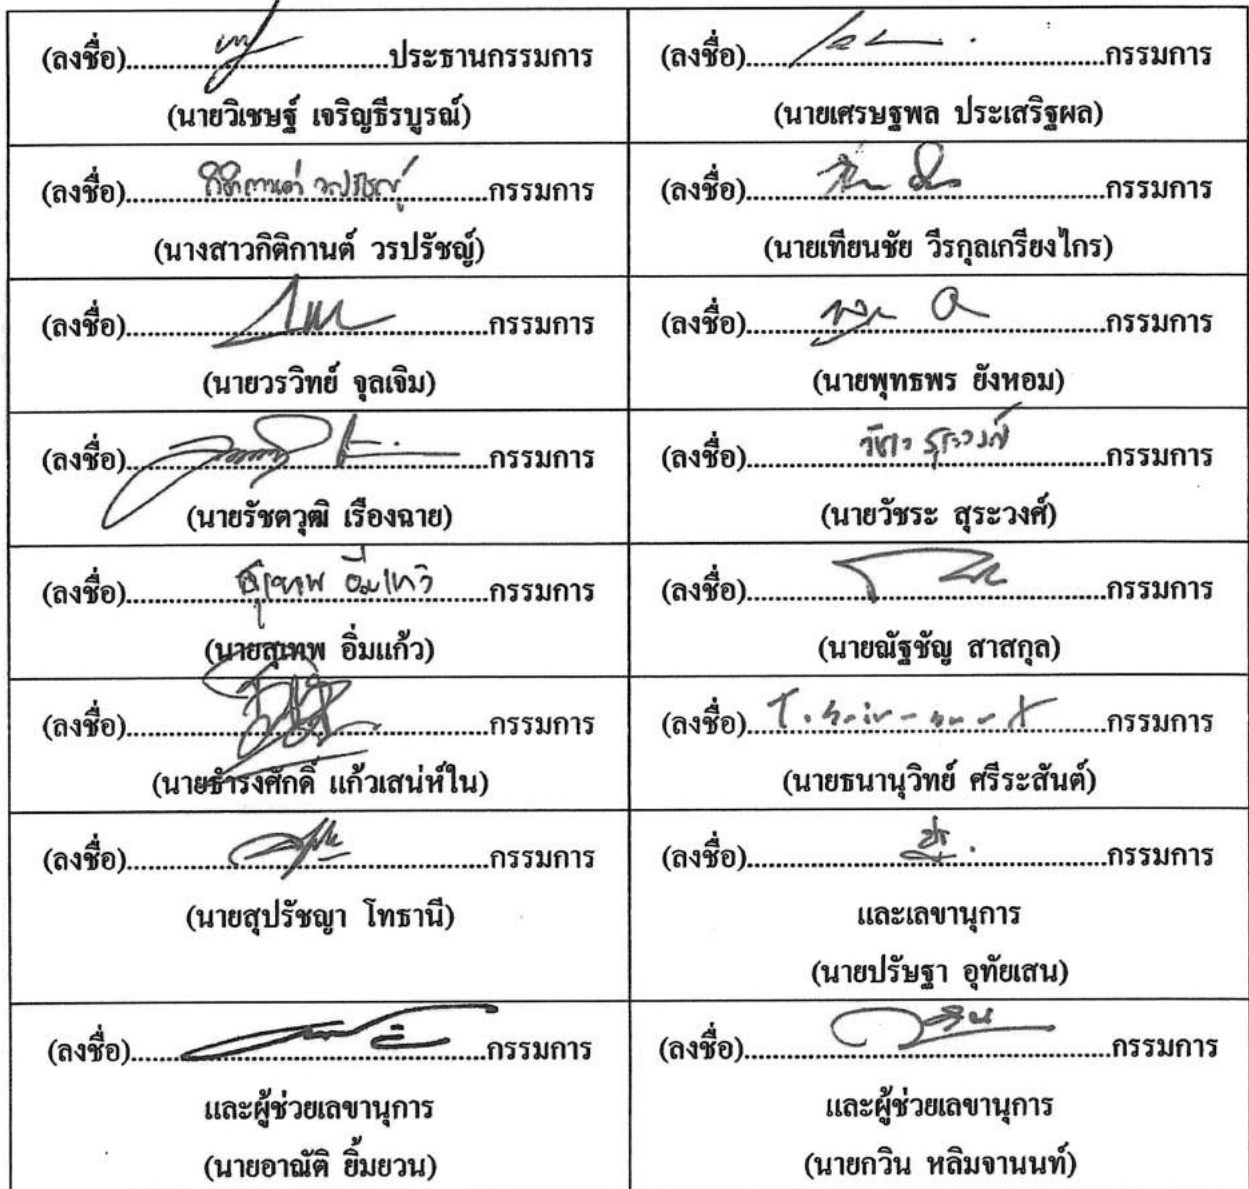 (ลงชื่อ)..........................ประธานกรรมการ
(นายวิเชษฐ์ เจริญธีรบูรณ์)
(ลงชื่อ)....................................กรรมการ
(นายเศรษฐพล ประเสริฐผล)
(ลงชื่อ) กิติกานต์ วรปรัชญ์ กรรมการ
(นางสาวกิติกานต์ วรปรัชญ์)
(ลงชื่อ)....................................กรรมการ
(นายเทียนชัย วีรกุลเกรียงไกร)
(ลงชื่อ)....................................กรรมการ
(นายวรวิทย์ จุลเจิม)
(ลงชื่อ)....................................กรรมการ
(นายพุทธพร ยังหอม)
(ลงชื่อ)....................................กรรมการ
(นายรัชตวุฒิ เรืองฉาย)
(ลงชื่อ) วัชระ สุระวงศ์ กรรมการ
(นายวัชระ สุระวงศ์)
(ลงชื่อ) สุเทพ อิ่มแก้ว กรรมการ
(นายสุเทพ อิ่มแก้ว)
(ลงชื่อ)....................................กรรมการ
(นายณัฐชัญ สาสกุล)
(ลงชื่อ)....................................กรรมการ
(นายธำรงศักดิ์ แก้วเสน่ห์ใน)
(ลงชื่อ)....................................กรรมการ
(นายธนานุวิทย์ ศรีระสันต์)
(ลงชื่อ)....................................กรรมการ
(นายสุปรัชญา โทธานี)
(ลงชื่อ)....................................กรรมการ
และเลขานุการ
(นายปรัษฐา อุทัยเสน)
(ลงชื่อ)....................................กรรมการ
และผู้ช่วยเลขานุการ
(นายอาณัติ ยิ้มยวน)
(ลงชื่อ)....................................กรรมการ
และผู้ช่วยเลขานุการ
(นายกวิน หลิมจานนท์)